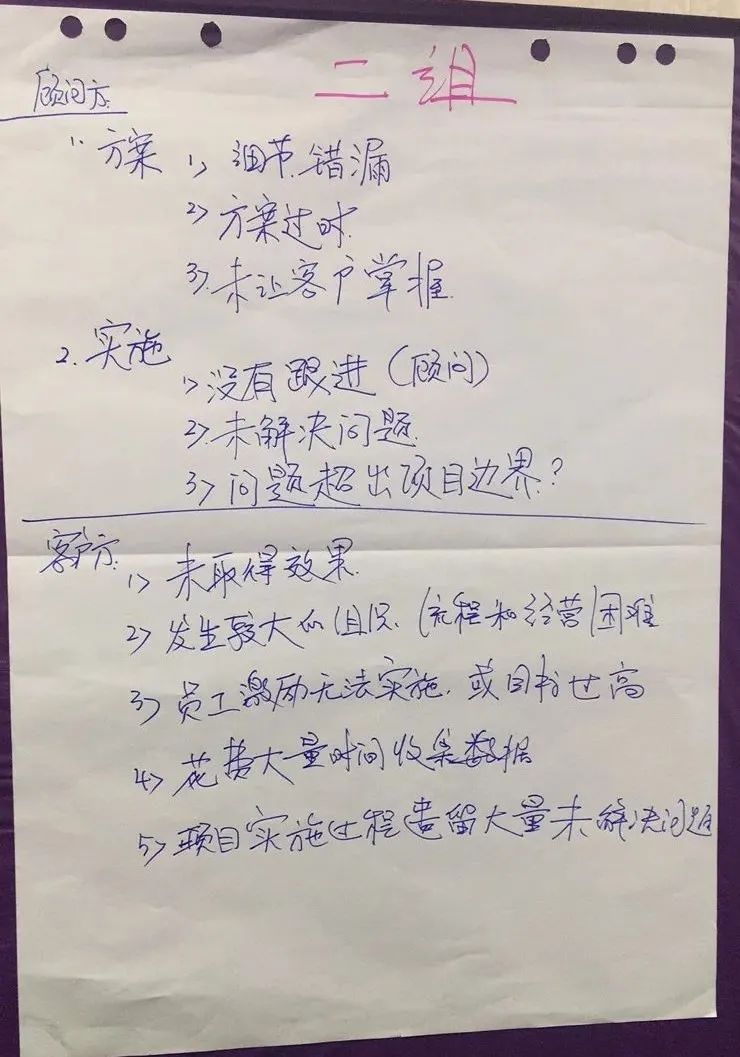 二组
顾问方:
1. 方案 1> 细节错漏
2> 方案过时.
3>. 未让客户掌握.
2. 实施
1> 没有跟进(顾问)
2>. 未解决问题.
3> 问题超出项目边界?
客户方:
1> 未取得效果.
2> 发生较大的组织、流程和经营困难
3> 员工激励无法实施. 或目标过高
4> 花费大量时间收集数据
5> 项目实施过程遗留大量未解决问题